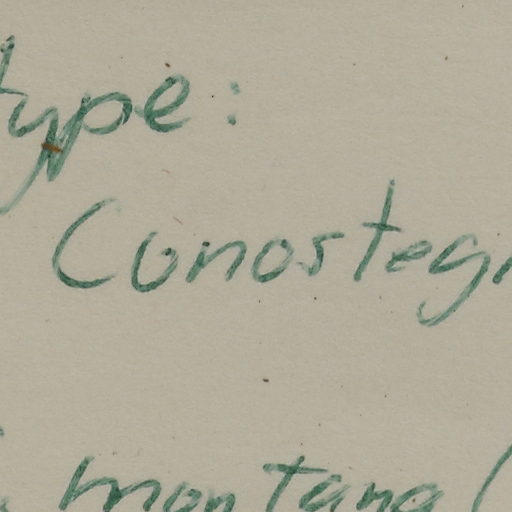 type:
Conosteg
montana (